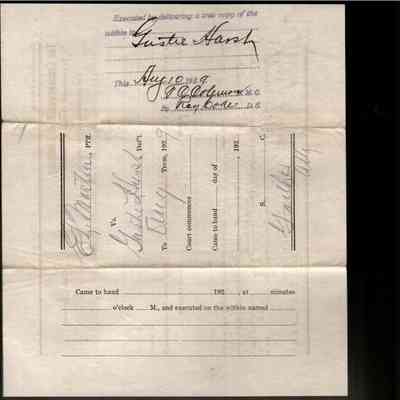 Executed by delivering a true copy of the
within to
Gustie Harsh
This Aug 10 1929
M.C.
By Ray D.C.
Martin Ptff.
Vs.
Gustie Harsh Deft.
To Aug Term, 1929
Court commences
Came to hand day of , 192
S. C.
Came to hand 192 , at minutes
o'clock M., and executed on the within named